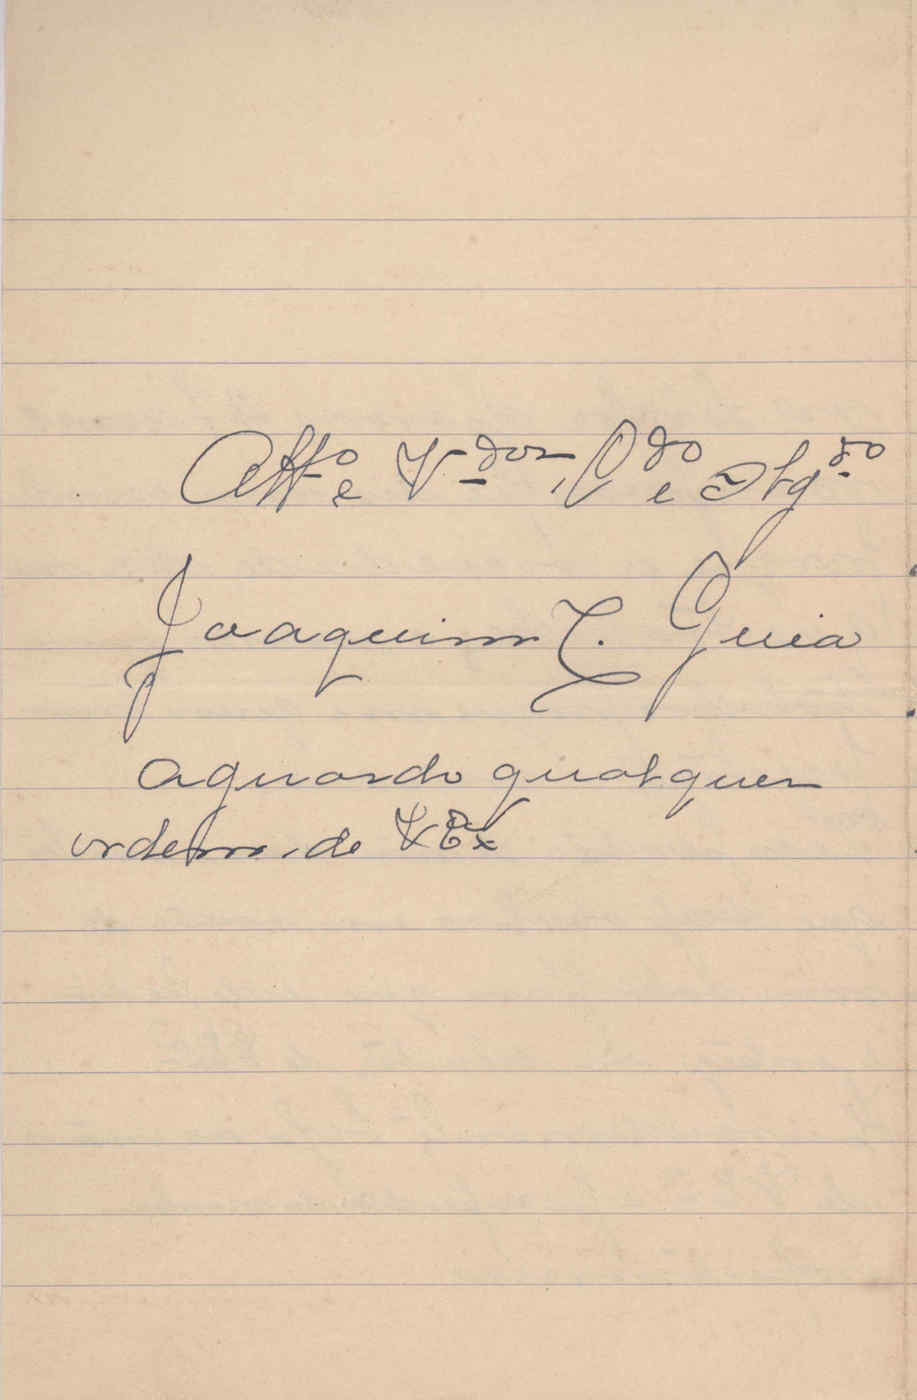 Att.º e V.dor, C.do e Obg.do
Joaquim T. Guia
aguardo qualquer
ordem de V Ex